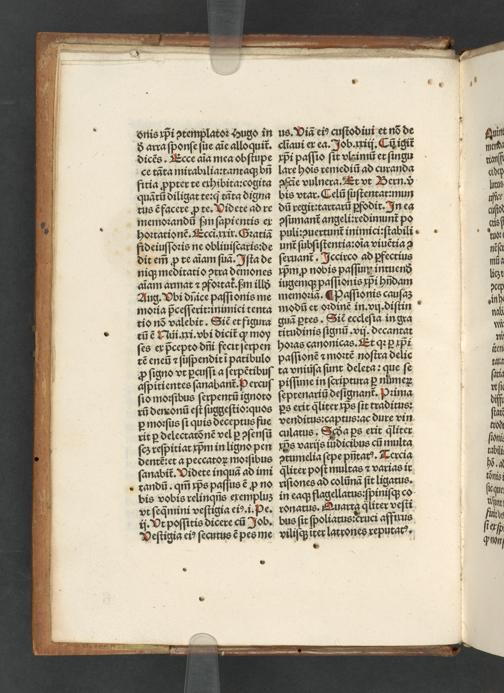 onis xp̄i ꝯtemplator Hugo in
ð arra sponse sue aīe alloquit̄.
dicēs. Ecce aīa mea obstupe
ce tāta mirabilia: tantaqꝫ bn̄
ficia ꝓpter te exhibita: cogita
quātū diligat te: q tāta digna
tus ē facere ꝓ te. Videte ad re
memorandū scd̄m sapientis ex
hortationē. Ecc̄i.xxix. Gratiā
fideiussoris ne obliuiscaris: de
dit em̄ ꝓ te aīam suā. Ista de
niqꝫ meditatio ꝯtra demones
aīam armat ⁊ ꝯfortat. scd̄m illð
Aug. Vbi dn̄ice passionis me
moria p̄cesserit: inimici tenta
tio nō valebit. Sic̄ et figura
tū ē Nūi.xxi. vbi dicit̄ ꝙ moy
ses ex p̄cepto dn̄i fecit serpen
tē eneū ⁊ suspendit ī patibulo
ꝓ signo vt ꝑcussi a serpētibus
aspicientes sanabant̄. Percus
sio morsibus serpentū ignito
rū demonū est suggestio: quos
ꝑ morsus si quis deceptus fue
rit ꝑ delectatōnē vel ꝑ ꝯsensū
scꝫ respitiat xp̄m in ligno pen
dentē: et a peccatoꝝ morsibus
sanabit̄. Videte inquā ad imi
tandū. qm̄ xp̄s passus ē ꝓ no
bis vobis relinqn̄s exemplū
vt seq̄mini vestigia eiꝰ. i. Pe.
ij. Vt possitis dicere cū Job.
Vestigia eiꝰ secutus ē pes me
us. Viā eiꝰ custodiui et nō de
clinaui ex ea. Job.xxiij. Cū igit̄
xp̄i passio sit vltimū et singu
lare hois remediū ad curanda
ꝯscīe vulnera. Et vt Bern. ð
bis vtar. Celū sustentat: mun
dū regit: tartarꝝ ꝑfodit. In ea
ꝯfirmant̄ angeli: redimunt̄ po
puli: vertunt̄ inimici: stabili
unt̄ subsistentia: oīa viuētia ꝯ
seruant̄. Iccirco ad ꝑfectius
xp̄m ꝓ nobis passum intuendū
iugemqꝫ passionis xp̄i hn̄dam
memoriā. ¶ Passionis causaꝫ
modū et ordinē in .vij. distin
guā ꝑtes. Sic̄ ecclesia in gra
titudinis signū .vij. decantat
horas canonicas. Et q̄ꝫ ꝑ xp̄i
passionē ⁊ mortē nostra delic
ta vniuersa sunt deleta: que se
pissime in scriptura ꝑ numeꝝ
septenariū designant̄. Prima
ꝑs erit qualiter xp̄s sit traditus:
venditus: captus: ac dure vin
culatus. Scd̄a ꝑs erit qualiter
xp̄s varijs iudicibus cū multa
ꝯtumelia sepe p̄ntat̄. Tercia
qualiter post multas ⁊ varias ir
risiones ad colūnā sit ligatus.
in eaqꝫ flagellatus: spinisqꝫ co
ronatus. Quarta qualiter vesti
bus sit spoliatus: cruci affixus
vilisqꝫ iter latrones reputat̄.